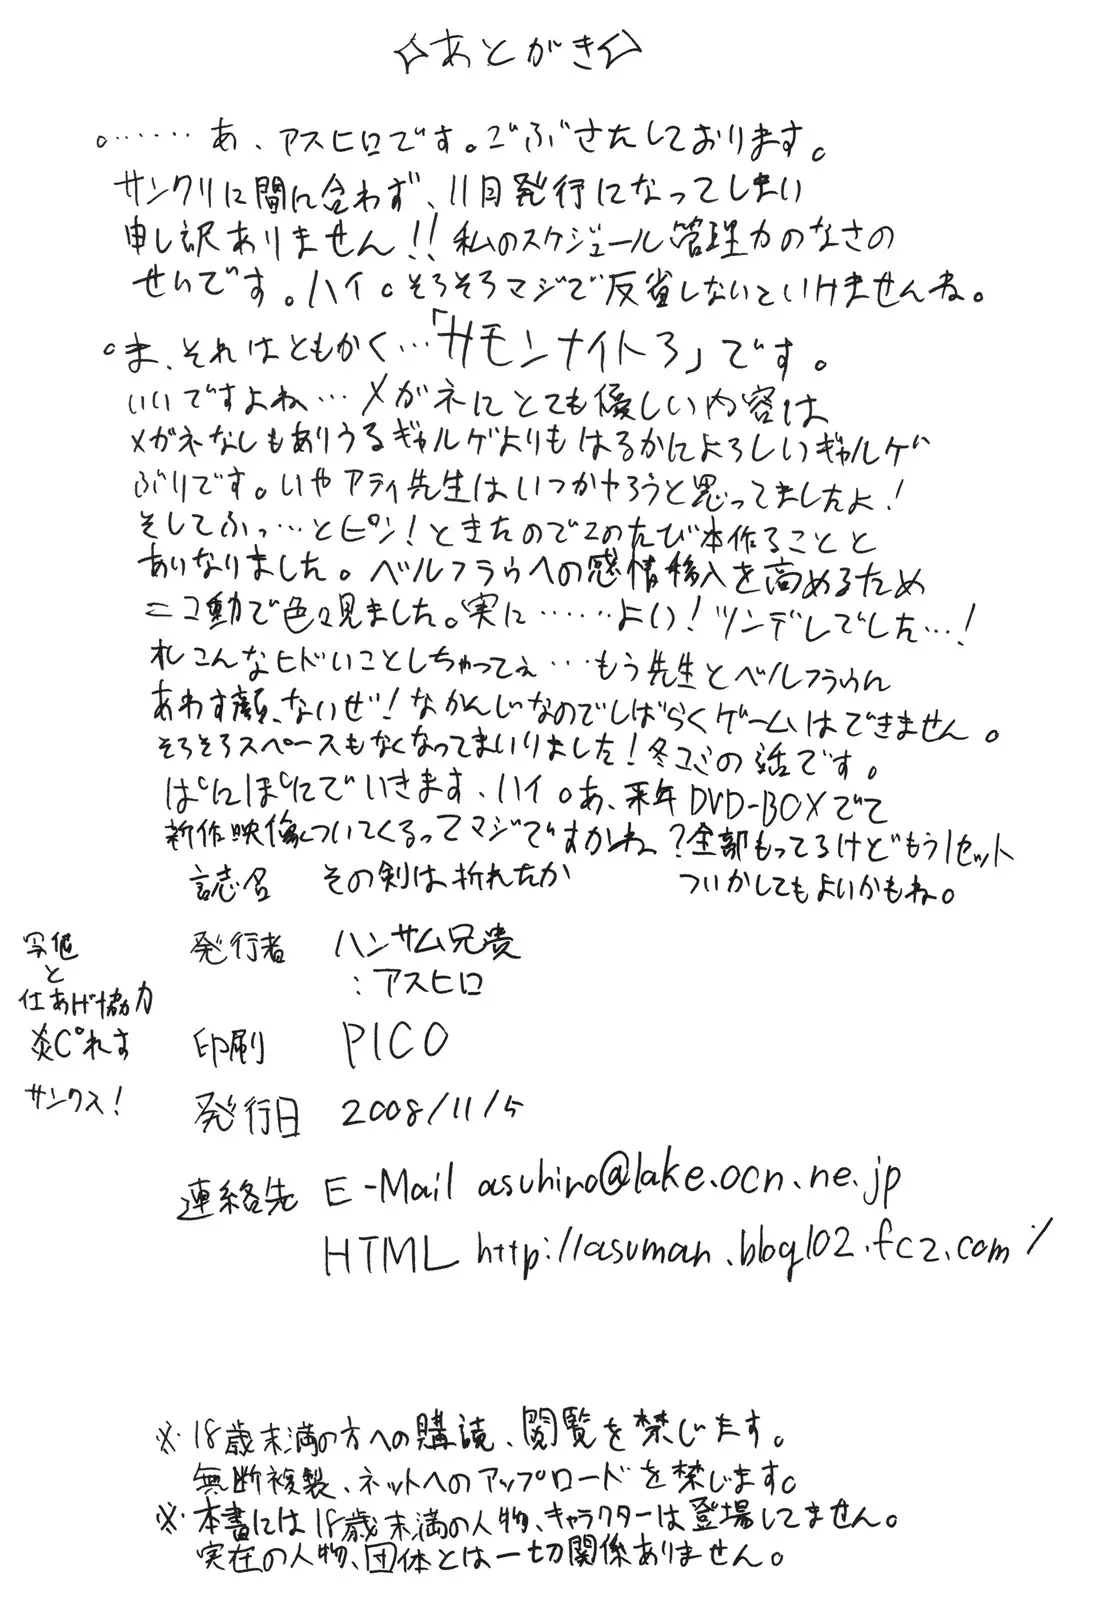 ☆あとがき☆
。……あ、アスヒロです。ごぶさたしております。
サンクリに間に合わず、11月発行になってしまい
申し訳ありません!!私のスケジュール管理力のなさの
せいです。ハイ。そろそろマジで反省しないといけませんね。
。ま、それはともかく…「サモンナイト3」です。
いいですよね…メガネにとても優しい内容は
メガネなしもありうるギャルゲよりもはるかによろしいギャルゲ
ぶりです。いやアティ先生はいつかやろうと思ってましたよ!
そしてふっ…とピン!ときたのでこのたび本作ることと
あいなりました。ベルフラウへの感情移入を高めるため
ニコ動で色々見ました。実に……よい!ツンデレでした…!
私こんなヒドいことしちゃってぇ…もう先生とベルフラウに
あわす顔、ないぜ!なかんじなのでしばらくゲームはできません。
そろそろスペースもなくなってまいりました!冬コミの話です。
ぱにぽにでいきます、ハイ。あ、来年DVD-BOXでて
新作映像ついてくるってマジですかね?全部もってるけどもう1セット
ついかしてもよいかもね。
誌名 その剣は折れたか
発行者 ハンサム兄貴
:アスヒロ
写植
と
仕あげ協力
炎ぴれす
サンクス!
印刷 PICO
発行日 2008/11/5
連絡先 E-Mail asuhiro@lake.ocn.ne.jp
HTML http://asuman.blog102.fc2.com/
※18歳未満の方への購読、閲覧を禁じます。
無断複製、ネットへのアップロードを禁じます。
※本書には18歳未満の人物、キャラクターは登場してません。
実在の人物、団体とは一切関係ありません。